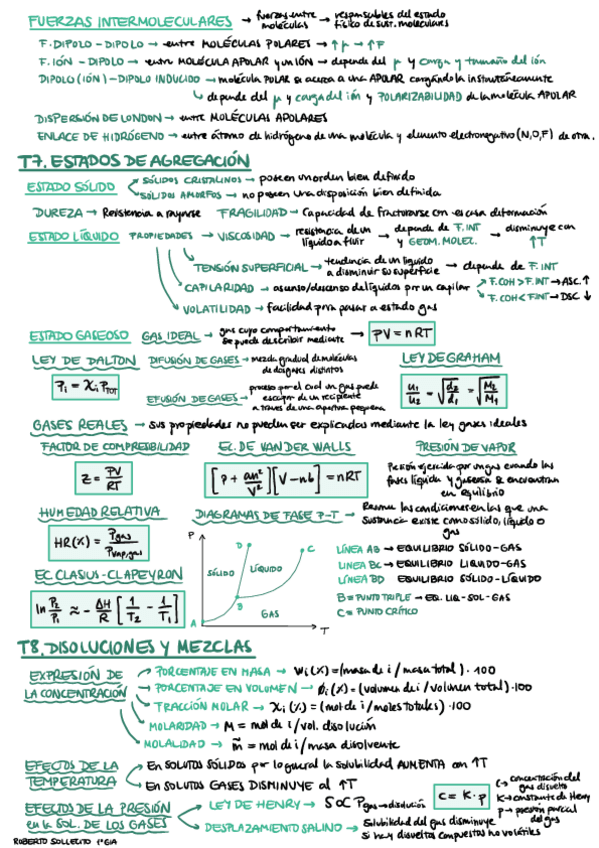 FUERZAS INTERMOLECULARES → fuerzas entre moléculas → responsables del estado físico de sust. moleculares
F. DIPOLO - DIPOLO → entre MOLÉCULAS POLARES → ↑μ → ↑F
F. IÓN - DIPOLO → entre MOLÉCULA APOLAR y un IÓN → depende del μ y carga y tamaño del ión
DIPOLO (IÓN) - DIPOLO INDUCIDO → molécula POLAR se acerca a una APOLAR cargándola instantáneamente
↳ depende del μ y carga del ión y POLARIZABILIDAD de la molécula APOLAR
DISPERSIÓN DE LONDON → entre MOLÉCULAS APOLARES
ENLACE DE HIDRÓGENO → entre átomo de hidrógeno de una molécula y elemento electronegativo (N,O,F) de otra.
T7. ESTADOS DE AGREGACIÓN
ESTADO SÓLIDO
SÓLIDOS CRISTALINOS → poseen un orden bien definido
SÓLIDOS AMORFOS → no poseen una disposición bien definida
DUREZA → Resistencia a rayarse FRAGILIDAD → Capacidad de fracturarse con escasa deformación
ESTADO LÍQUIDO PROPIEDADES → VISCOSIDAD → resistencia de un líquido a fluir → depende de F. INT y GEOM. MOLEC. → disminuye con ↑T
TENSIÓN SUPERFICIAL → tendencia de un líquido a disminuir su superficie → depende de F. INT
CAPILARIDAD → ascenso/descenso de líquidos por un capilar
F. COH > F. INT → ASC. ↑
F. COH < F. INT → DSC ↓
VOLATILIDAD → facilidad para pasar a estado gas
ESTADO GASEOSO GAS IDEAL → gas cuyo comportamiento se puede describir mediante → PV = nRT
LEY DE DALTON DIFUSIÓN DE GASES → mezcla gradual de moléculas de dos gases distintos LEY DE GRAHAM
Pi = Xi PTOT
EFUSIÓN DE GASES → proceso por el cual un gas puede escapar de un recipiente a través de una apertura pequeña
u1/u2 = √(d2/d1) = √(M2/M1)
GASES REALES → sus propiedades no pueden ser explicadas mediante la ley gases ideales
FACTOR DE COMPRESIBILIDAD EC. DE VAN DER WALLS PRESIÓN DE VAPOR
Z = PV/RT
[P + an²/V²][V - nb] = nRT
Presión ejercida por un gas cuando las fases líquida y gaseosa se encuentran en equilibrio
HUMEDAD RELATIVA DIAGRAMAS DE FASE P-T → Resume las condiciones en las que una sustancia existe como sólido, líquido o gas
HR(%) = Pgas/Pvap,gas
P
D
C
SÓLIDO
LÍQUIDO
B
GAS
A
T
LÍNEA AB → EQUILIBRIO SÓLIDO-GAS
LINEA BC → EQUILIBRIO LIQUIDO-GAS
LÍNEA BD EQUILIBRIO SÓLIDO-LÍQUIDO
B = PUNTO TRIPLE → EQ. LIQ-SOL-GAS
C = PUNTO CRÍTICO
EC CLASIUS-CLAPEYRON
ln P2/P1 ≈ - ΔH/R [1/T2 - 1/T1]
T8. DISOLUCIONES Y MEZCLAS
EXPRESIÓN DE LA CONCENTRACIÓN
PORCENTAJE EN MASA → Wi (%) = (masa de i / masa total) · 100
PORCENTAJE EN VOLUMEN → Øi (%) = (volumen de i / volumen total) · 100
FRACCIÓN MOLAR → Xi (%) = (mol de i / moles totales) · 100
MOLARIDAD → M = mol de i / vol. disolución
MOLALIDAD → m̃ = mol de i / masa disolvente
EFECTOS DE LA TEMPERATURA
En SOLUTOS SÓLIDOS por lo general la solubilidad AUMENTA con ↑T
En SOLUTOS GASES DISMINUYE al ↑T
EFECTOS DE LA PRESIÓN en la SOL. DE LOS GASES
LEY DE HENRY → S ∝ Pgas → disolución
C = K · p
C → concentración del gas disuelto
K → constante de Henry
p → presión parcial del gas
DESPLAZAMIENTO SALINO → Solubilidad del gas disminuye si hay disueltos compuestos no volátiles
ROBERTO SOLLECITO 1º GIA